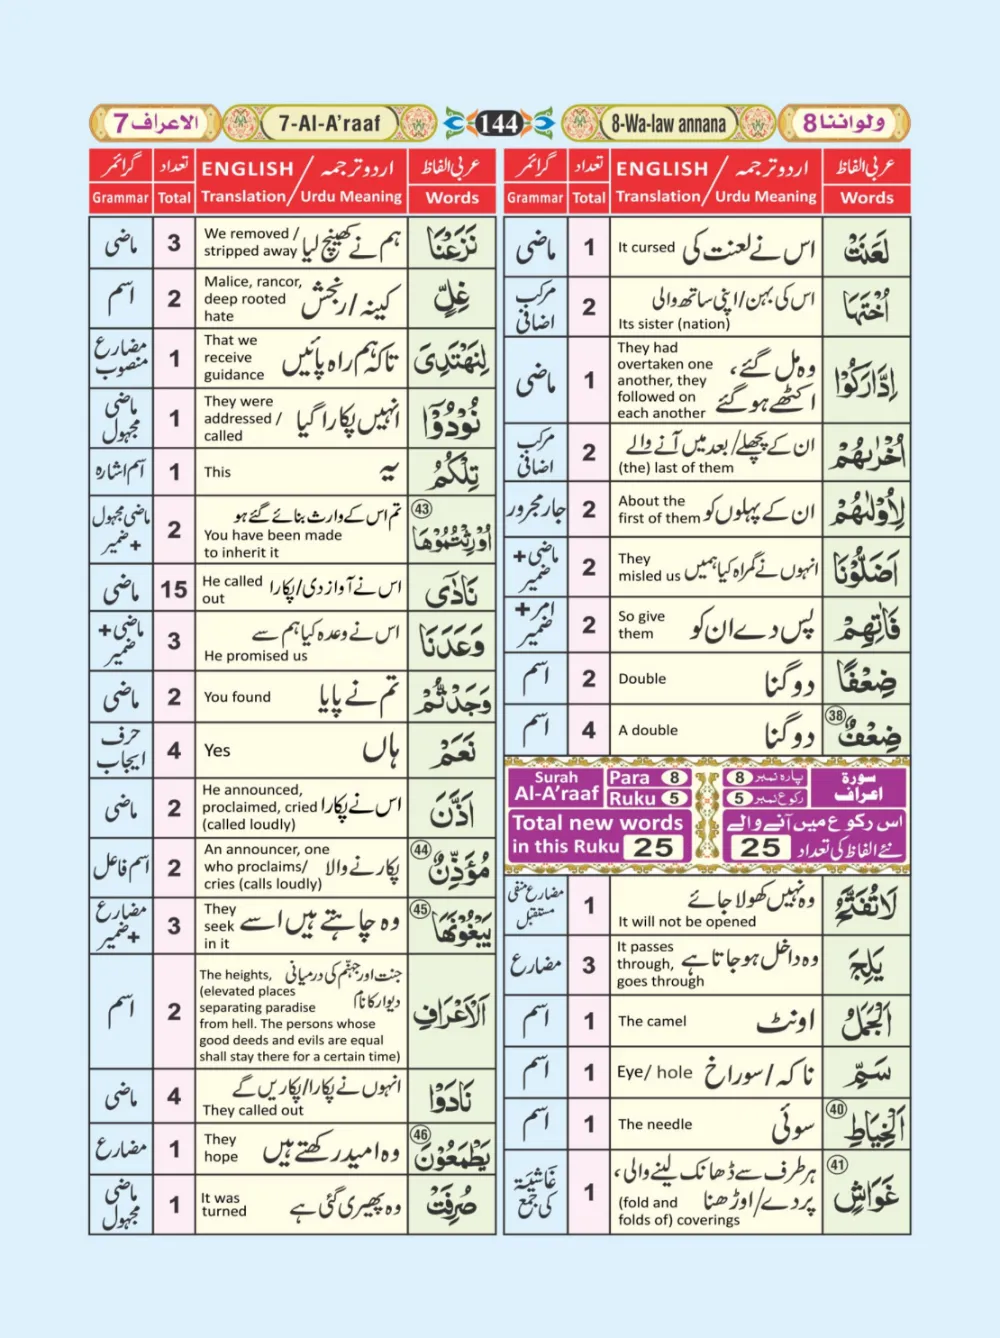 الاعراف 7
7-Al-A’raaf
144
8-Wa-law annana
ولواننا 8
عربی الفاظ
ENGLISH / اردو ترجمہ
تعداد
گرائمر
Words
Translation/ Urdu Meaning
Total
Grammar
لَعَنَتْ
اس نے لعنت کی
It cursed
1
ماضی
اُخْتَهَا
اس کی بہن/اپنی ساتھ والی
Its sister (nation)
2
مرکب اضافی
اِدَّارَكُوْا
وہ مل گئے،
اکٹھے ہو گئے
They had
overtaken one
another, they
followed on
each another
1
ماضی
اُخْرٰىهُمْ
ان کے پچھلے/بعد میں آنے والے
(the) last of them
2
مرکب اضافی
لِاُوْلٰىهُمْ
ان کے پہلوں کو
About the
first of them
2
جار مجرور
اَضَلُّوْنَا
انہوں نے گمراہ کیا ہمیں
They
misled us
2
ماضی+
ضمیر
فَاٰتِهِمْ
پس دے ان کو
So give
them
2
امر+
ضمیر
ضِعْفًا
دوگنا
Double
2
اسم
ضِعْفٌ 38
دوگنا
A double
4
اسم
Surah
Al-A’raaf
Para 8
Ruku 5
پارہ نمبر 8
رکوع نمبر 5
سورة
اعراف
Total new words
in this Ruku 25
اس رکوع میں آنے والے
نئے الفاظ کی تعداد 25
لَا تُفَتَّحُ
وہ نہیں کھولا جائے
It will not be opened
1
مضارع منفی
مستقبل
يَلِجَ
وہ داخل ہو جاتا ہے
It passes
through,
goes through
3
مضارع
الْجَمَلُ
اونٹ
The camel
1
اسم
سَمِّ
ناکہ/سوراخ
Eye/ hole
1
اسم
الْخِيَاطِ 40
سوئی
The needle
1
اسم
غَوَاشٍ 41
ہر طرف سے ڈھانک لینے والی،
پردے/اوڑھنا
(fold and
folds of) coverings
1
غَاشِيَة
کی جمع
عربی الفاظ
ENGLISH / اردو ترجمہ
تعداد
گرائمر
Words
Translation/ Urdu Meaning
Total
Grammar
نَزَعْنَا
ہم نے کھینچ لیا
We removed /
stripped away
3
ماضی
غِلٍّ
کینہ/رنجش
Malice, rancor,
deep rooted
hate
2
اسم
لِنَهْتَدِیَ
تاکہ ہم راہ پائیں
That we
receive
guidance
1
مضارع
منصوب
نُوْدُوْٓا
انہیں پکارا گیا
They were
addressed /
called
1
ماضی
مجہول
تِلْكُمُ
یہ
This
1
اسم اشارہ
اُوْرِثْتُمُوْهَا 43
تم اس کے وارث بنائے گئے ہو
You have been made
to inherit it
2
ماضی مجہول
+ضمیر
نَادٰٓى
اس نے آواز دی/پکارا
He called
out
15
ماضی
وَعَدَنَا
اس نے وعدہ کیا ہم سے
He promised us
3
ماضی+
ضمیر
وَجَدْتُّمْ
تم نے پایا
You found
2
ماضی
نَعَمْ
ہاں
Yes
4
حرف
ایجاب
اَذَّنَ
اس نے پکارا
He announced,
proclaimed, cried
(called loudly)
2
ماضی
مُؤَذِّنٌ 44
پکارنے والا
An announcer, one
who proclaims/
cries (calls loudly)
2
اسم فاعل
يَبْغُوْنَهَا 45
وہ چاہتے ہیں اسے
They
seek
in it
3
مضارع
+ضمیر
الْاَعْرَافِ
جنت اور جہنّم کی درمیانی
دیوار کا نام
The heights,
(elevated places
separating paradise
from hell. The persons whose
good deeds and evils are equal
shall stay there for a certain time)
2
اسم
نَادَوْا
انہوں نے پکارا/پکاریں گے
They called out
4
ماضی
يَطْمَعُوْنَ 46
وہ امید رکھتے ہیں
They
hope
1
مضارع
صُرِفَتْ
وہ پھیری گئی ہے
It was
turned
1
ماضی
مجہول